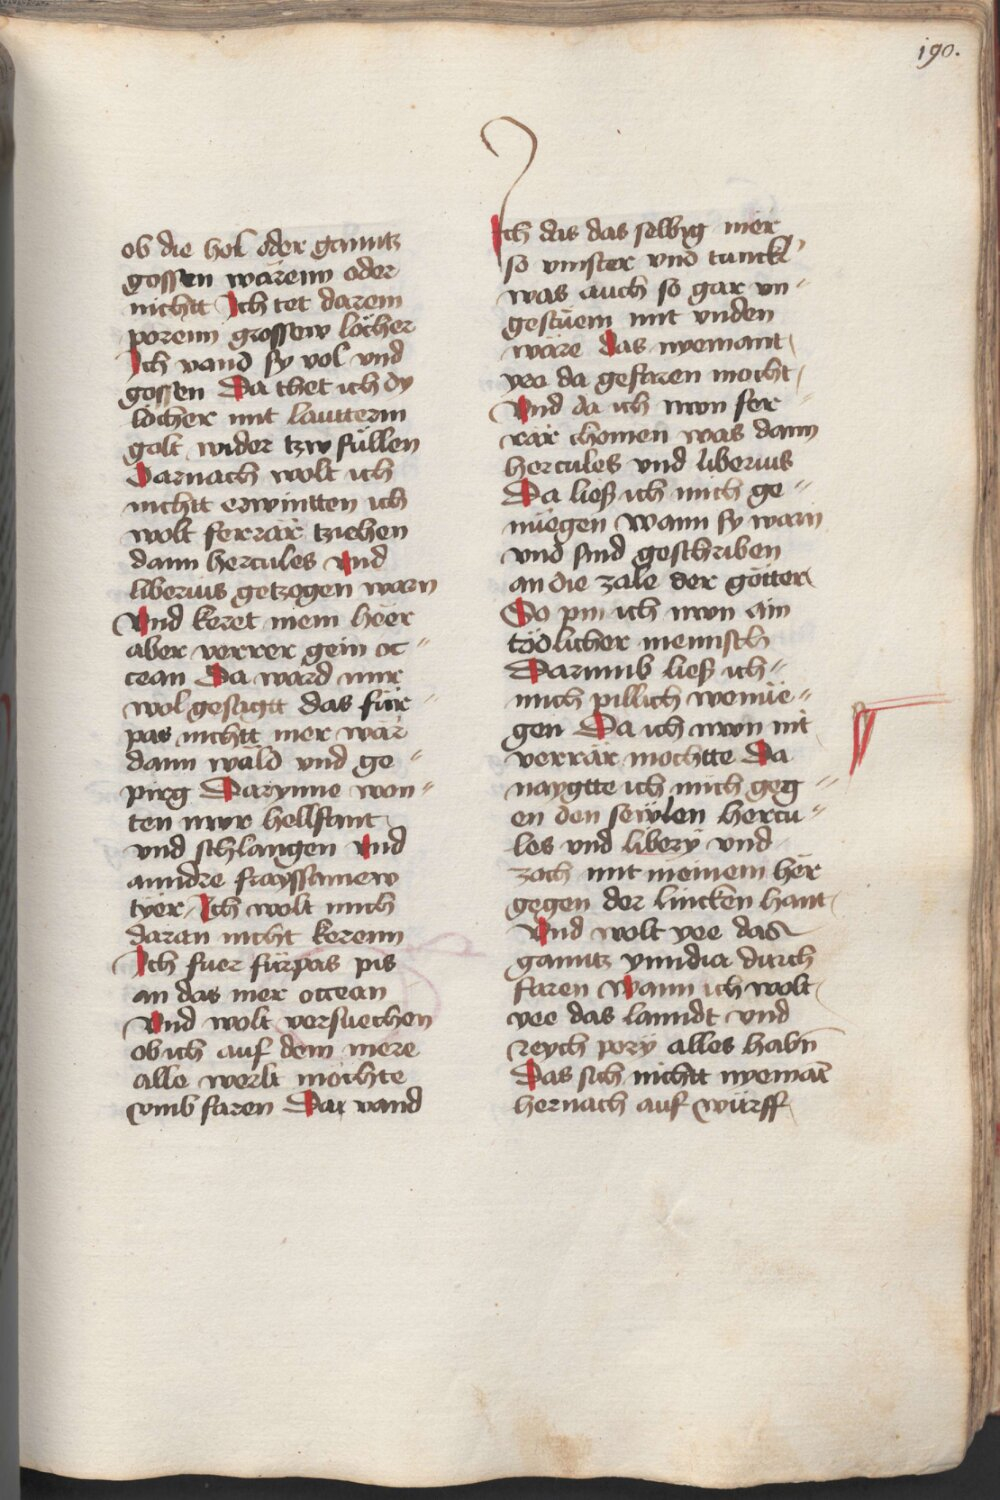 190.
ob die hol oder ganntz
gossen wärenn oder
nichtt Ich tet darein
porenn grossew löcher
Ich vand sy vol vnd
gossen Da thet ich dy
löcher mit lautterm
golt wider tzw füllen
Darnach wolt ich
nichtt erwintten ich
wolt ferrär tziehen
dann hercules vnd
liberius getzogen warn
Vnd keret mein heer
aber verrer gein oc¬
cean Da ward mir
wol gesagtt das für¬
pas nichtt mer wär
dann wäld vnd ge¬
pirg Darynne won¬
ten nwr hellfant
vnd schlangen Vnd
anndre frayssamew
tyer Ich wolt mich
daran nicht kerenn
Ich fuer fürpas pis
an das mer occean
Vnd wolt versuechen
ob ich auf dem mere
alle werlt möchte
vmb faren Da vand
Ich das das selbig mer
so vinster vnd tunckl
was auch so gar vn¬
gestüem mit vnden
wäre das nyemant
yea da gefaren mocht
Vnd da ich nwn fer¬
rär chomen was dann
hercules vnd liberius
Da ließ ich mich ge¬
nüegen wann sy warn
vnd sind geschriben
an die zale der götter
So pin ich nwn ain
tödlicher mennsch
Darumb ließ ich
mich pillich wenüe¬
gen Da ich nwn nit
verrär mochtte Da
naygtte ich mich geg¬
en den sewlen hercu¬
les vnd libery vnd
zoch mit meinem her
gegen der lincken hant
Vnd wolt yee das
ganntz ynndia durch
faren Wann ich wolt
yee das lanndt vnd
reych pory alles habn
Das sich nichtt nyemant
hernach auf würff